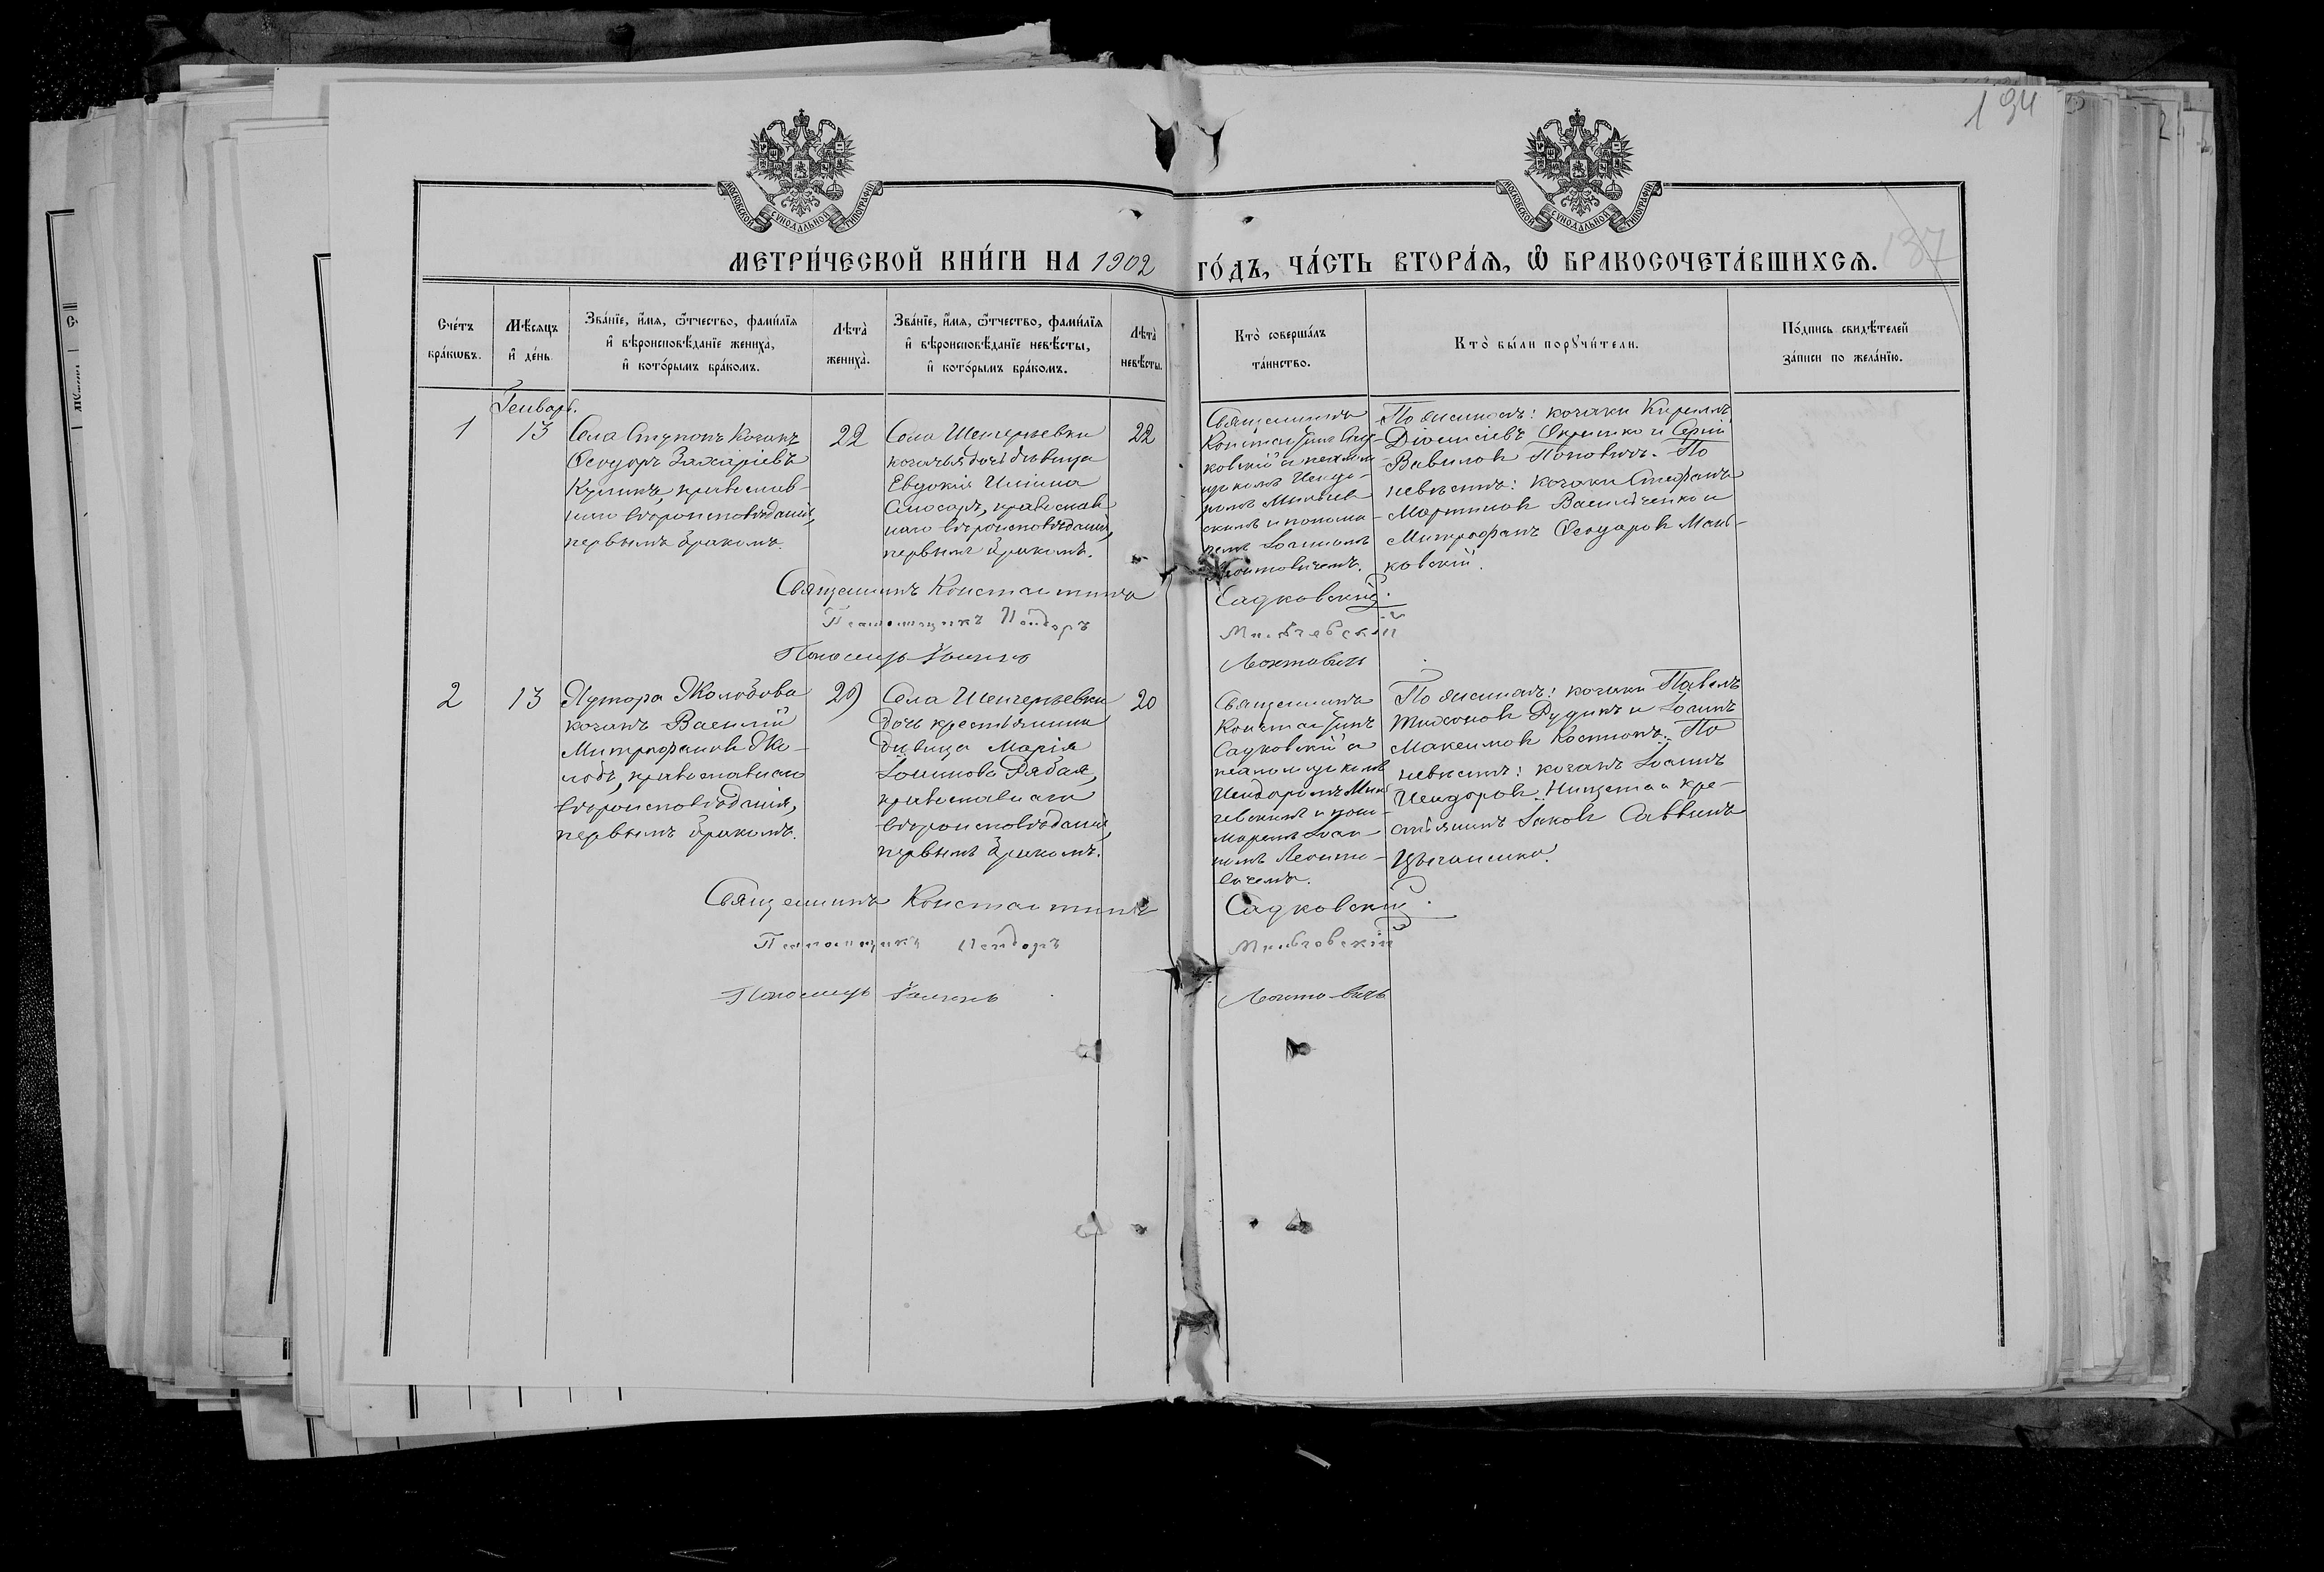 194
137
МОСКОВСКОЙ СѴНОДАЛЬНОЙ ТИПОГРАФІИ
МОСКОВСКОЙ СѴНОДАЛЬНОЙ ТИПОГРАФІИ
МЕТРИ́ЧЕСКОЙ КНИ́ГИ НА 1902 ГО́ДЪ, ЧА́СТЬ ВТОРА́Я, Ѿ БРАКОСОЧЕТА́ВШИХСЯ.
Сче́тъ
бра́кѡвъ.
Мѣ́сяцъ
и҆ де́нь
Зва́нїе, и҆́мя, ѻ҆́тчество, фами́лїя
и҆ вѣроисповѣ́данїе жениха̀,
и҆ кото́рымъ бра́комъ.
Лѣта̀
жениха̀.
Зва́нїе, и҆́мя, ѻ҆́тчество, фами́лїя
и҆ вѣроисповѣ́данїе невѣ́сты,
и҆ кото́рымъ бра́комъ.
Лѣта̀
невѣ́сты.
Кто̀ соверша́лъ
та́инство.
Кто̀ бы́ли порꙋчи́тели.
По́дпись свидѣ́телей
за́писи по жела́нїю.
Генварь.
1
13
Села Ступокъ Козакъ
Ѳеодоръ Захаріевъ
Куликъ, православ-
наго вѣроисповѣданія,
первымъ бракомъ.
22
Села Шенгерѣевки
козачья дочь дѣвица
Евдокія
Слюсарь, православ
наго вѣроисповѣданія,
первымъ бракомъ.
22
Священникъ
Константинъ Сад-
ковскій и псалом
щикомъ Исидо-
ромъ
скимъ и понома-
ремъ Іоанномъ
По женихѣ: козаки Кириллъ
Діонисіевъ и Сергій
Вавиловъ Поповичъ. По
невѣстѣ: козаки Стефанъ
Мартиновъ Василченко и
Митрофанъ Ѳеодоровъ Мань-
ковскій.
Священникъ Константинъ Садковскій.
Псаломщикъ Исидоръ
Пономарь Іоаннъ
2
13
Хутора Жолобова
козакъ Василій
Митрофановъ Жо-
лобъ, православнаго
вѣроисповѣданія,
первымъ бракомъ.
Села Шенгерѣевки
дочь крестьянина
дѣвица Марія
Іоаннова Рябая,
православнаго
вѣроисповѣданія,
первымъ бракомъ.
20
Священникъ
Константинъ
Садковскій и
псаломщикомъ
Исидоромъ
и поно-
маремъ Іоан-
номъ
По женихѣ: козаки Павелъ
Тихоновъ Рудикъ и Іоаннъ
Максимовъ Костюкъ. По
невѣстѣ: козакъ Іоаннъ
Исидоровъ и кре-
стьянинъ Іаковъ Саввинъ
Цыганенко.
Священникъ Константинъ Садковскій.
Псаломщикъ Исидоръ
Пономарь Іоаннъ